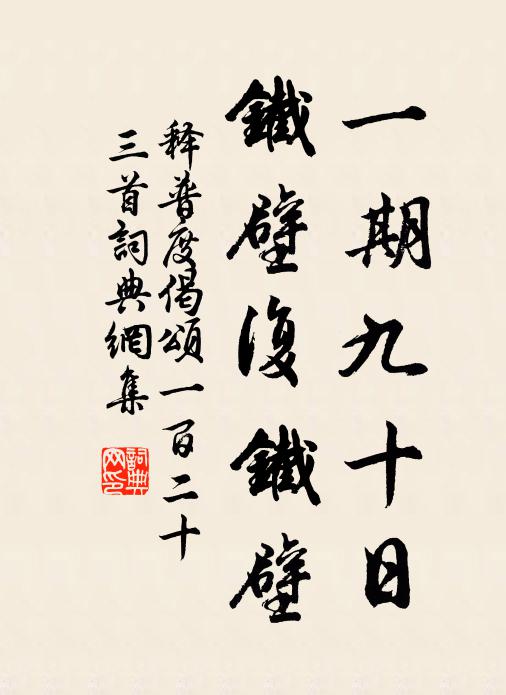 一期九十日
鐵壁復鐵壁
释普度偈頌一百二十
三首詞典網集
詞典網印